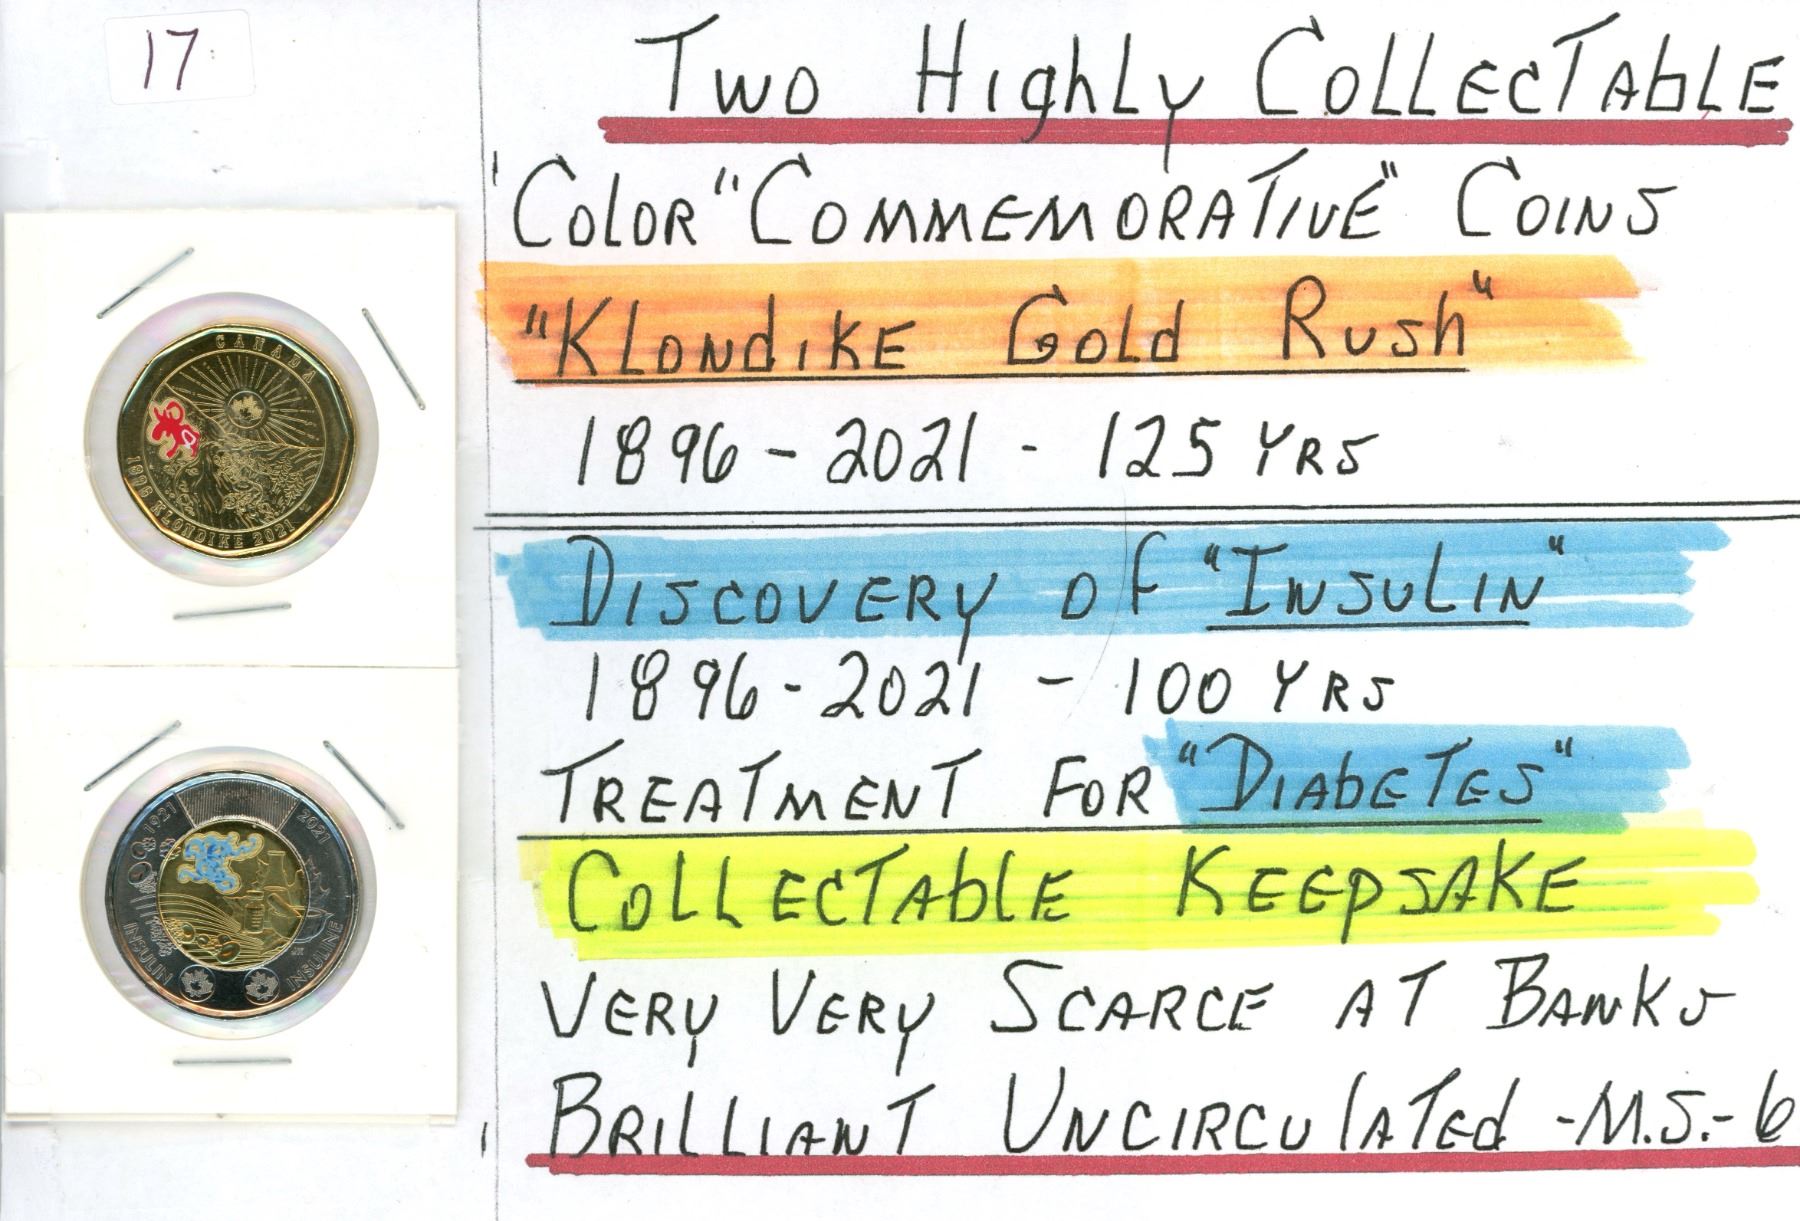 17
Two Highly Collectable
'Color "Commemorative" Coins
"Klondike Gold Rush"
1896 - 2021 - 125 Yrs
Discovery of "Insulin"
1896 - 2021 - 100 Yrs
Treatment For "Diabetes"
Collectable Keepsake
Very Very Scarce at Banks
Brilliant Uncirculated - M.S. - 6
CANADA
1896 KLONDIKE 2021
1921
2021
INSULIN
INSULINE